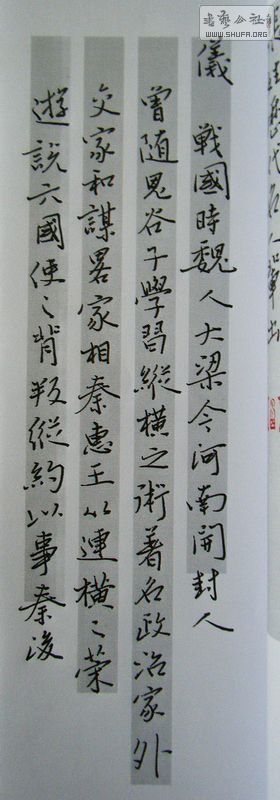 书艺公社
WWW.SHUFA.ORG
儀 戰國時魏人大梁今河南開封人
曾隨鬼谷子學習縱橫之術著名政治家外
交家和謀畧家相秦惠王以連橫之策
遊說六國使之背叛縱約以事秦後